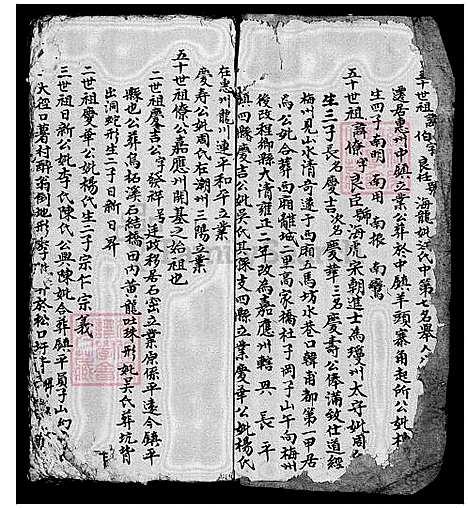 五十世祖 伯 字良任 號海龍妣洪氏中第七名舉人
遷居惠州中鎮立業公葬於中鎮羊頭寨角起所公妣
生四子南明 南用 南根 南鸞
五十世祖 諱條字良臣號海虎宋朝進士為瓊州太守妣周
生三子長名慶吉 次名慶華 三名慶壽公俸滿致仕道經
梅州見山水清奇遂于西廂五馬坊水巷口韓甫都第一甲居
焉公妣合葬西廂離城二里高家橋社于岡子山午向梅州
後改程鄉縣大清雍正二年改為嘉應州轄 興 長 平
鎮四縣慶吉公妣吳氏其保支四縣立業慶華公妣楊氏
在惠州龍川連平和平立業
慶壽公妣周氏在潮州三陽立業
五十世祖條公嘉應州開基之始祖也
二世祖慶吉公字發祥 號廷政移居石窟立業原係平遠今鎮平
縣也公葬馬柘溪石結橋田內黃龍吐珠形妣吳氏葬坑背
出洞蛇形生二子日新日昇
二世祖慶華公妣楊氏生二子宗仁宗義
三世祖日新公妣李氏陳氏公與陳妣合葬鎮平員子山
大徑口薯村醉翁倒地形李 於松口